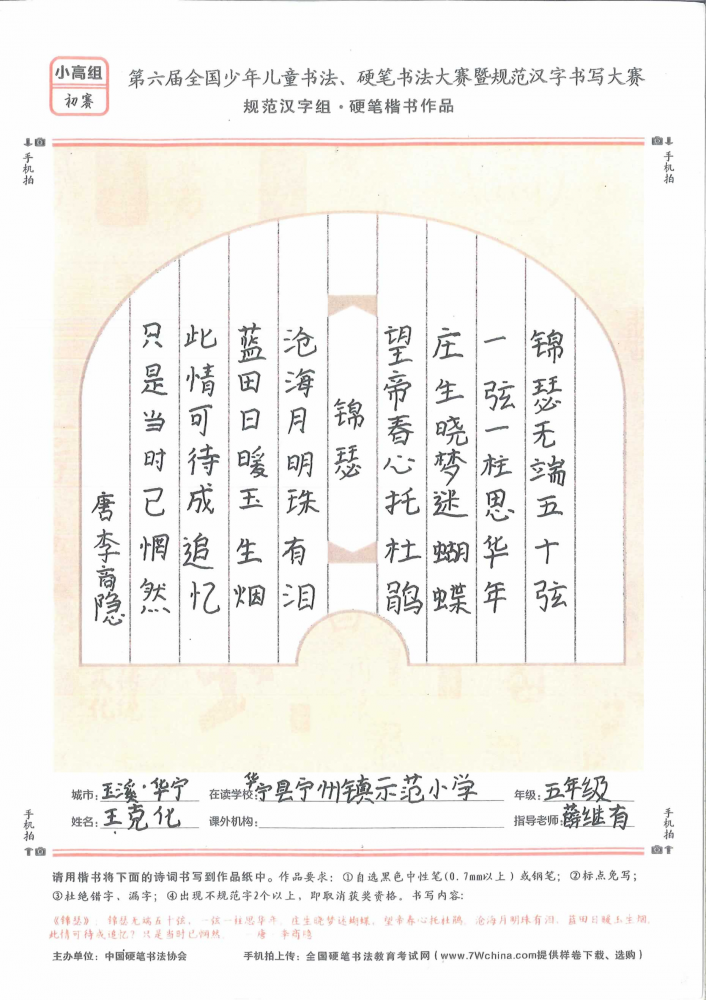 小高组
初赛
第六届全国少年儿童书法、硬笔书法大赛暨规范汉字书写大赛
规范汉字组·硬笔楷书作品
手机拍
手机拍
锦瑟无端五十弦
一弦一柱思华年
庄生晓梦迷蝴蝶
望帝春心托杜鹃
锦瑟
沧海月明珠有泪
蓝田日暖玉生烟
此情可待成追忆
只是当时已惘然
唐李商隐
手机拍
手机拍
城市：玉溪·华宁 在读学校：华宁县宁州镇示范小学 年级：五年级
姓名：王克化 课外机构： 指导老师：薛继有
请用楷书将下面的诗词书写到作品纸中。作品要求：①自选黑色中性笔(0.7mm以上)或钢笔；②标点免写；
③杜绝错字、漏字；④出现不规范字2个以上，即取消获奖资格。书写内容：
《锦瑟》 锦瑟无端五十弦，一弦一柱思华年。庄生晓梦迷蝴蝶，望帝春心托杜鹃。沧海月明珠有泪，蓝田日暖玉生烟。
此情可待成追忆？只是当时已惘然。——唐·李商隐
主办单位：中国硬笔书法协会 手机拍上传：全国硬笔书法教育考试网（www.7Wchina.com提供样卷下载、选购）